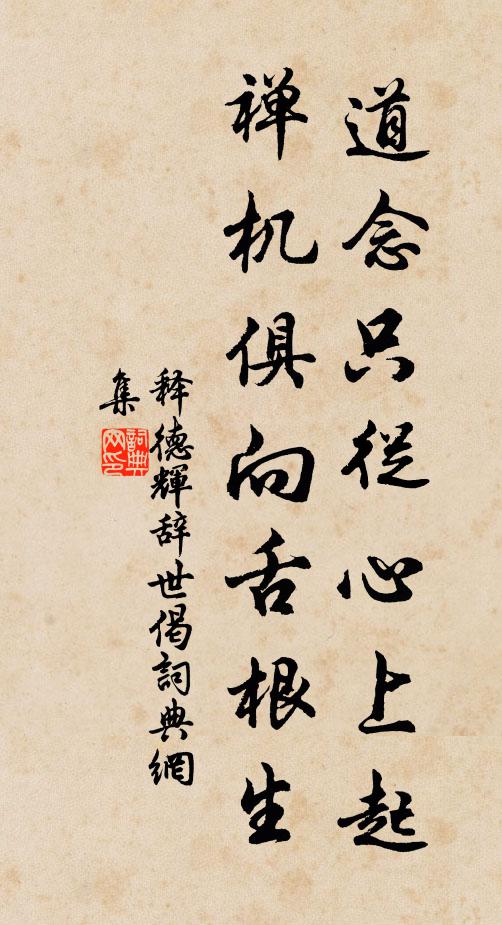 道念只從心上起
禅机俱向舌根生
释德輝辞世偈詞典網
集
詞典
网印